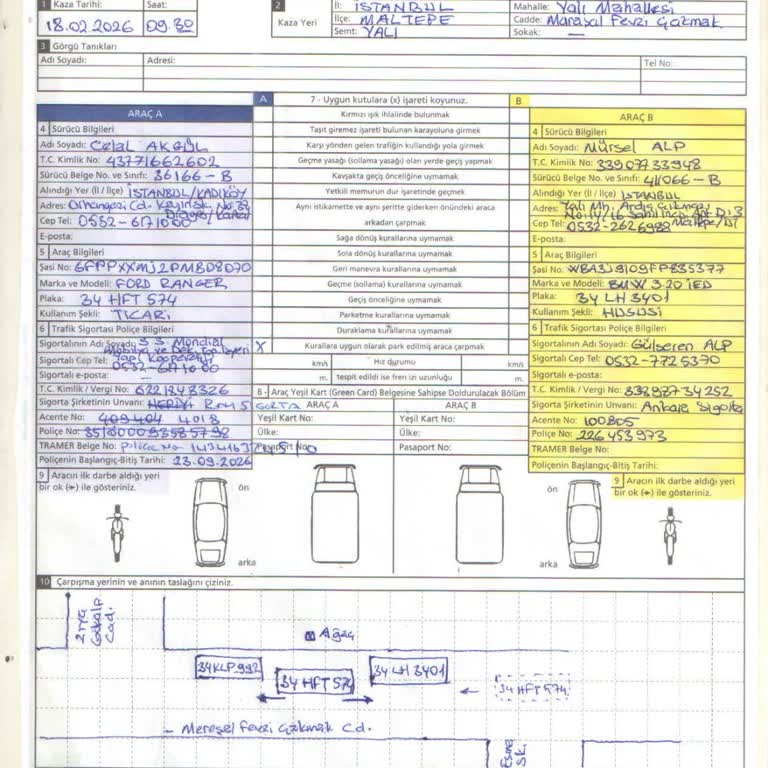 1 Kaza Tarihi: Saat:
18.02.2026 09.30
2 Kaza Yeri
İl: İSTANBUL
İlçe: MALTEPE
Semt: YALI
Mahalle: Yalı Mahallesi
Cadde: Maraşal Fevzi Çakmak
Sokak: —
3 Görgü Tanıkları
Adı Soyadı: Adresi: Tel No:
ARAÇ A
4 Sürücü Bilgileri
Adı Soyadı: Celal AKGÜL
T.C. Kimlik No: 43771662602
Sürücü Belge No. ve Sınıfı: 36166 - B
Alındığı Yer (İl / İlçe) İSTANBUL/KADIKÖY
Adres: Orhangazi Cd. No: 34
Cep Tel: 0532-6171000
E-posta:
5 Araç Bilgileri
Şasi No: 6FPPXXMJ2PMB08070
Marka ve Modeli: FORD RANGER
Plaka: 34 HFT 574
Kullanım Şekli: TİCARİ
6 Trafik Sigortası Poliçe Bilgileri
Sigortalının Adı Soyadı S.S. Mondial
Mobilya ve Dek.
Yapı Kooperatifi
Sigortalı Cep Tel: 0532-6171000
Sigortalı e-posta: —
T.C. Kimlik / Vergi No: 6221848326
Sigorta Şirketinin Unvanı: RAM SİGORTA
Acente No: 409404 4018
Poliçe No: 351000093585798
TRAMER Belge No: Police No
Poliçenin Başlangıç-Bitiş Tarihi: 23.09.2026
9 Aracın ilk darbe aldığı yeri
bir ok (➛) ile gösteriniz.
A 7 - Uygun kutulara (x) işareti koyunuz. B
Kırmızı ışık ihlalinde bulunmak
Taşıt giremez işareti bulunan karayoluna girmek
Karşı yönden gelen trafiğin kullandığı yola girmek
Geçme yasağı (sollama yasağı) olan yerde geçiş yapmak
Kavşakta geçiş önceliğine uymamak
Yetkili memurun dur işaretinde geçmek
Aynı istikamette ve aynı şeritte giderken önündeki araca
arkadan çarpmak
Sağa dönüş kurallarına uymamak
Sola dönüş kurallarına uymamak
Geri manevra kurallarına uymamak
Geçme (sollama) kurallarına uymamak
Geçiş önceliğine uymamak
Parketme kurallarına uymamak
Duraklama kurallarına uymamak
X Kurallara uygun olarak park edilmiş araca çarpmak
km/s Hız durumu km/s
m. tespit edildi ise fren izi uzunluğu m.
8 - Araç Yeşil Kart (Green Card) Belgesine Sahipse Doldurulacak Bölüm
ARAÇ A ARAÇ B
Yeşil Kart No: Yeşil Kart No:
Ülke: Ülke:
Pasaport No: Pasaport No:
ARAÇ B
4 Sürücü Bilgileri
Adı Soyadı: Nürsel ALP
T.C. Kimlik No: 33907733948
Sürücü Belge No. ve Sınıfı: 411066 - B
Alındığı Yer (İl / İlçe) İSTANBUL
Adres: Yalı Mh.
Cep Tel: 0532-2626988 Maltepe/İST
E-posta:
5 Araç Bilgileri
Şasi No: WBA3J9109FP835377
Marka ve Modeli: BMW 3.20 İED
Plaka: 34 LH 3401
Kullanım Şekli: HUSUSİ
6 Trafik Sigortası Poliçe Bilgileri
Sigortalının Adı Soyadı: Gülseren ALP
Sigortalı Cep Tel: 0532-7725370
Sigortalı e-posta: —
T.C. Kimlik / Vergi No: 33898734252
Sigorta Şirketinin Unvanı: Ankara Sigorta
Acente No: 100805
Poliçe No: 226453973
TRAMER Belge No:
Poliçenin Başlangıç-Bitiş Tarihi:
9 Aracın ilk darbe aldığı yeri
bir ok (➛) ile gösteriniz.
ön ön
arka arka
10 Çarpışma yerinin ve anının taslağını çiziniz.
Ziya
Gökalp
Cad.
Ağaç
34 KLP 992
34 HFT 574
34 LH 3401
34 HFT 574
— Mereşel Fevzi Çakmak Cd.
Esma
Sk.